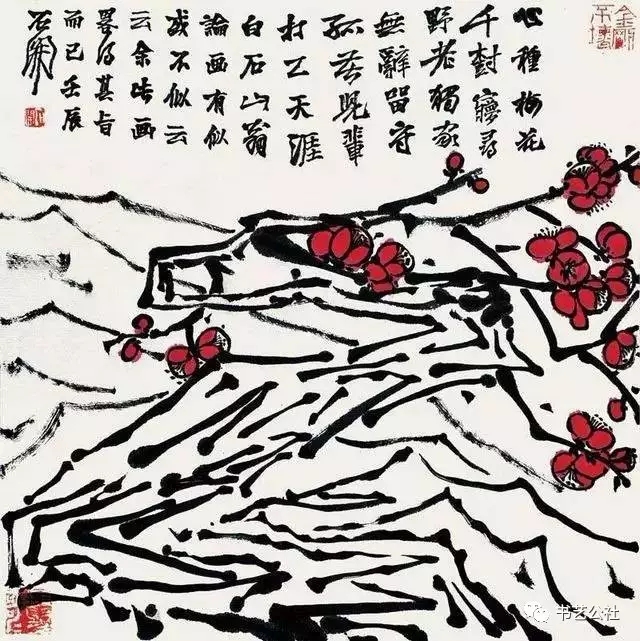 心種梅花
千尋
野老獨家
無辭留守
孤兒輩
打工天涯
白石山翁
論画有似
或不似云
云余此画
畧得其旨
而已壬辰
石開
金剛不壞
书艺公社